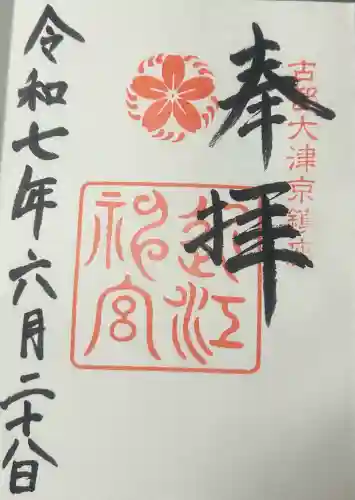 古都大津京鎮座
奉拝
近江神宮
令和七年六月二十八日